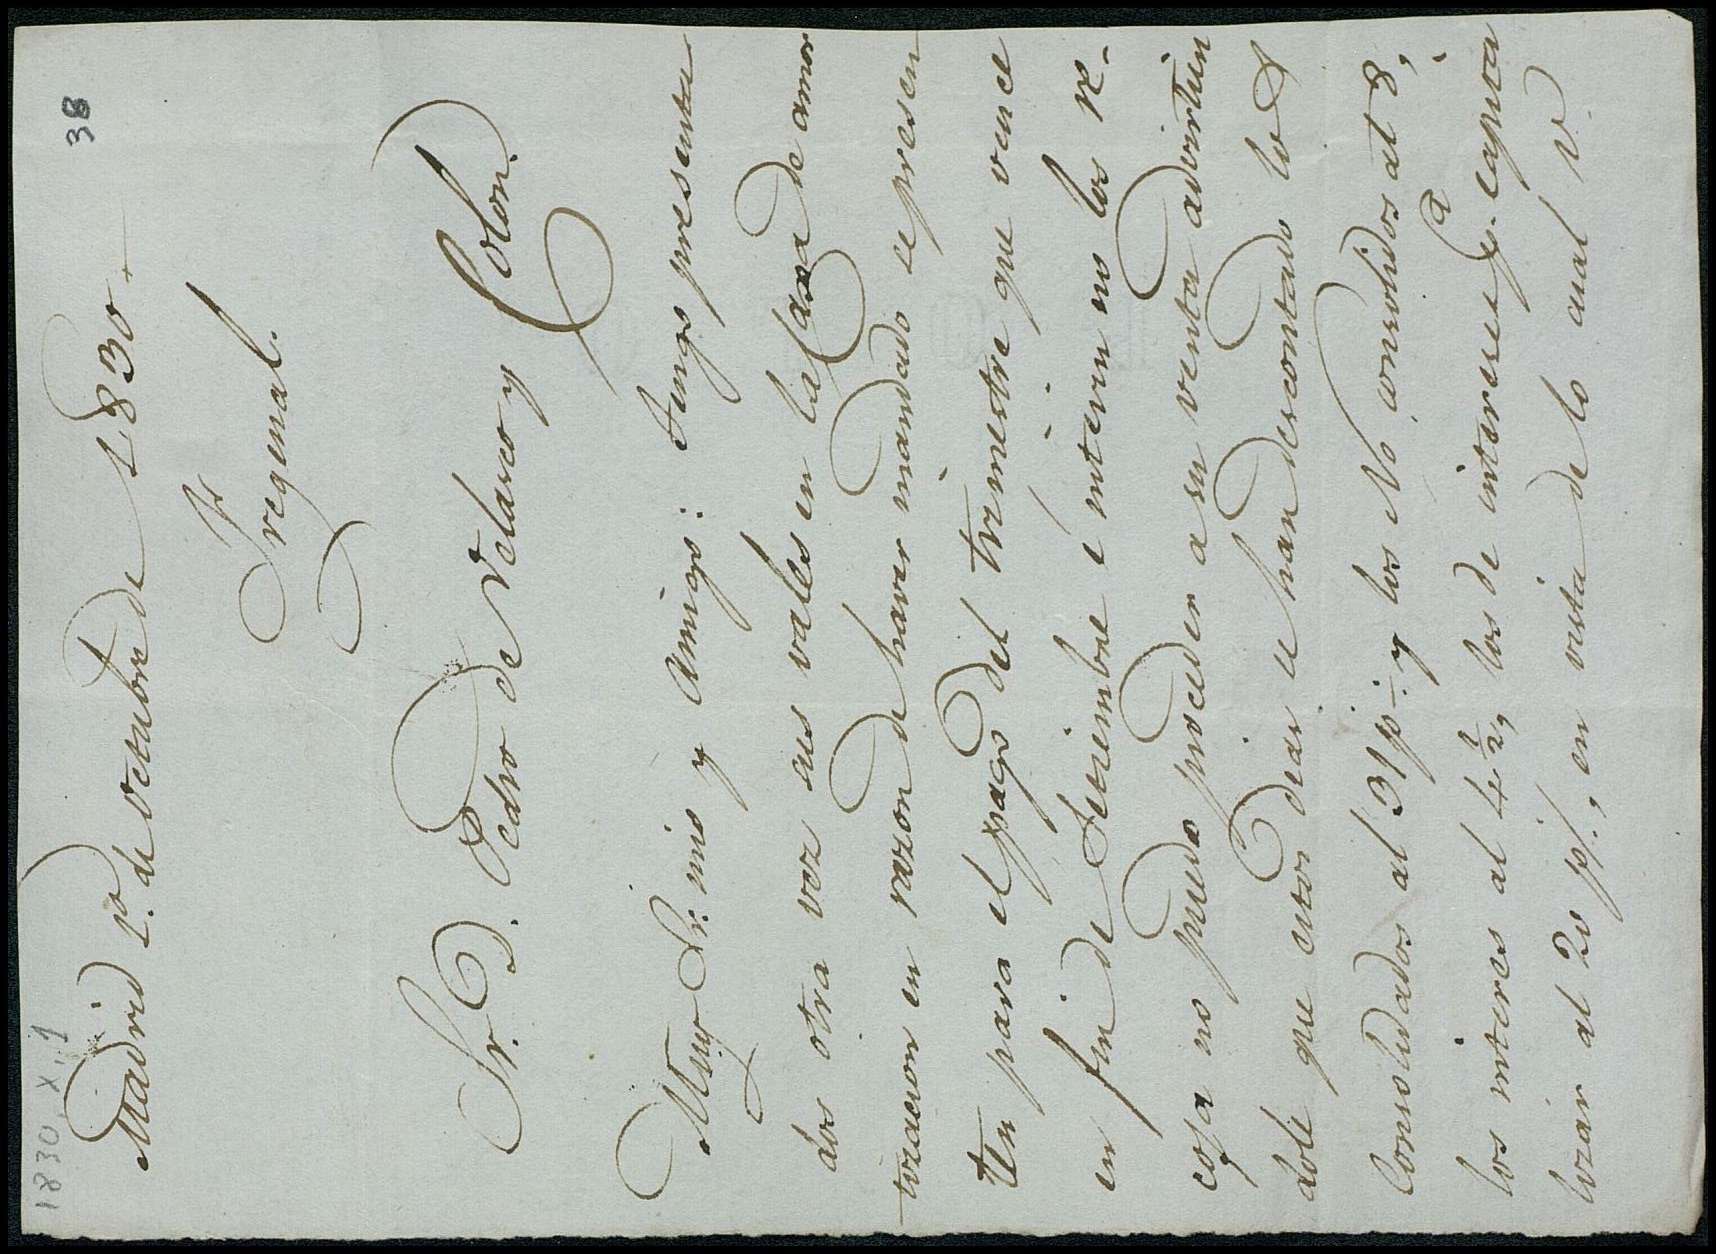 1830, X, 1
38
Madrid 1º. de Octubre de 1830
Fregenal.
Sr. D. Pedro de Velasco y Colon.
Muy Sr. mio y Amigo: tengo presenta
dos otra vez sus vales en la Caxa de amor
tizacion en razon de haver mandado se presen
ten para el pago del trimestre que vence
en fin de Setiembre é interin no los re-
coja no puedo proceder a su venta advirtien
dole que estos dias se han descontado los
Consolidados al 31 p% y los No consolidos al 8,
los interes al 4 1/2, los de intereses á capita
lizar al 20 p%, en vista de lo cual V.